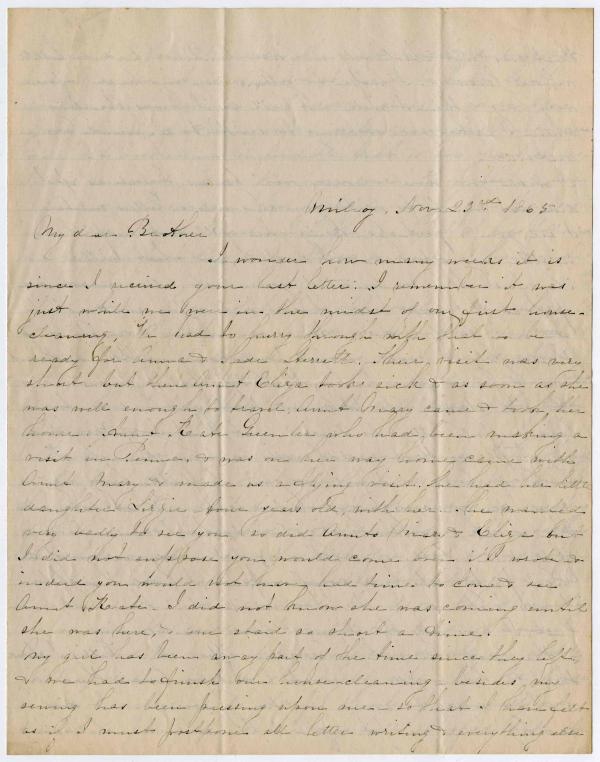 Milroy, Nov 23rd 1865
My dear Brother
I wonder how many weeks it is
since I received your last letter. I remember it was
just while we were in the midst of our first house-
cleaning. We had to hurry through with that to be
ready for Anna & Sade Sterrett. Their visit was very
short but then Aunt Eliza took sick & as soon as she
was well enough to travel Aunt Mary came & took her
home. Aunt Kate who had been making a
visit in & was on her way home came with
Aunt Mary & made us a flying visit. She had her little
daughter Lizzie four years old, with her. She wanted
very badly to see you so did Aunts Mary & Eliza but
I did not suppose you would come even if I wrote &
indeed you would not have had time to come & see
Aunt Kate. I did not know she was coming until
she was here, & she staid so short a time.
My girl has been away part of the time since they left
& we had to finish our house-cleaning besides my
sewing has been pressing upon me so that I have felt
as if I must postpone all letter writing & everything else